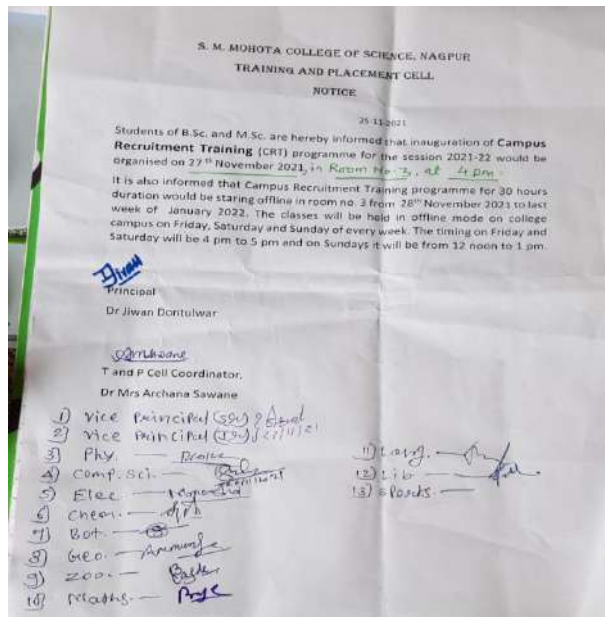 S. M. MOHOTA COLLEGE OF SCIENCE, NAGPUR
TRAINING AND PLACEMENT CELL
NOTICE
25-11-2021
Students of B.Sc. and M.Sc. are hereby informed that inauguration of Campus
Recruitment Training (CRT) programme for the session 2021-22 would be
organised on 27th November 2021, in Room No. 3, at 4 pm.
It is also informed that Campus Recruitment Training programme for 30 hours
duration would be staring offline in room no. 3 from 28th November 2021 to last
week of January 2022. The classes will be held in offline mode on college
campus on Friday, Saturday and Sunday of every week. The timing on Friday and
Saturday will be 4 pm to 5 pm and on Sundays it will be from 12 noon to 1 pm.
Principal
Dr Jiwan Dontulwar
T and P Cell Coordinator,
Dr Mrs Archana Sawane
1) Vice Principal
2) Vice Principal
3) Phy.
4) Comp. Sci.
5) Elec
6) Chem.
7) Bot.
8) Geo.
9) Zoo.
10) Maths.
11) Lang.
12) Lib
13) Sports.